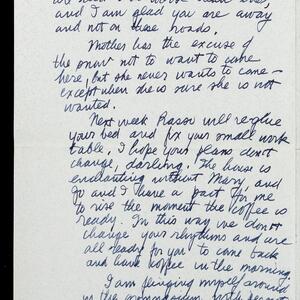 and I am glad you are away
and not on these roads.
Mother has the excuse of
the snow not to want to come
here, but she never wants to come –
except when she is sure she is not
wanted.
Next week Rasso will reglue
your bed and fix your small work
table. I hope your plans don't
change, darling. The house is
enchanting without Mary, and
Jo and I have a pact for me
to rise the moment the coffee is
ready. In this way we don't
change your rhythms and are
all ready for you to come back
and have coffee in the morning.
I am flinging myself around